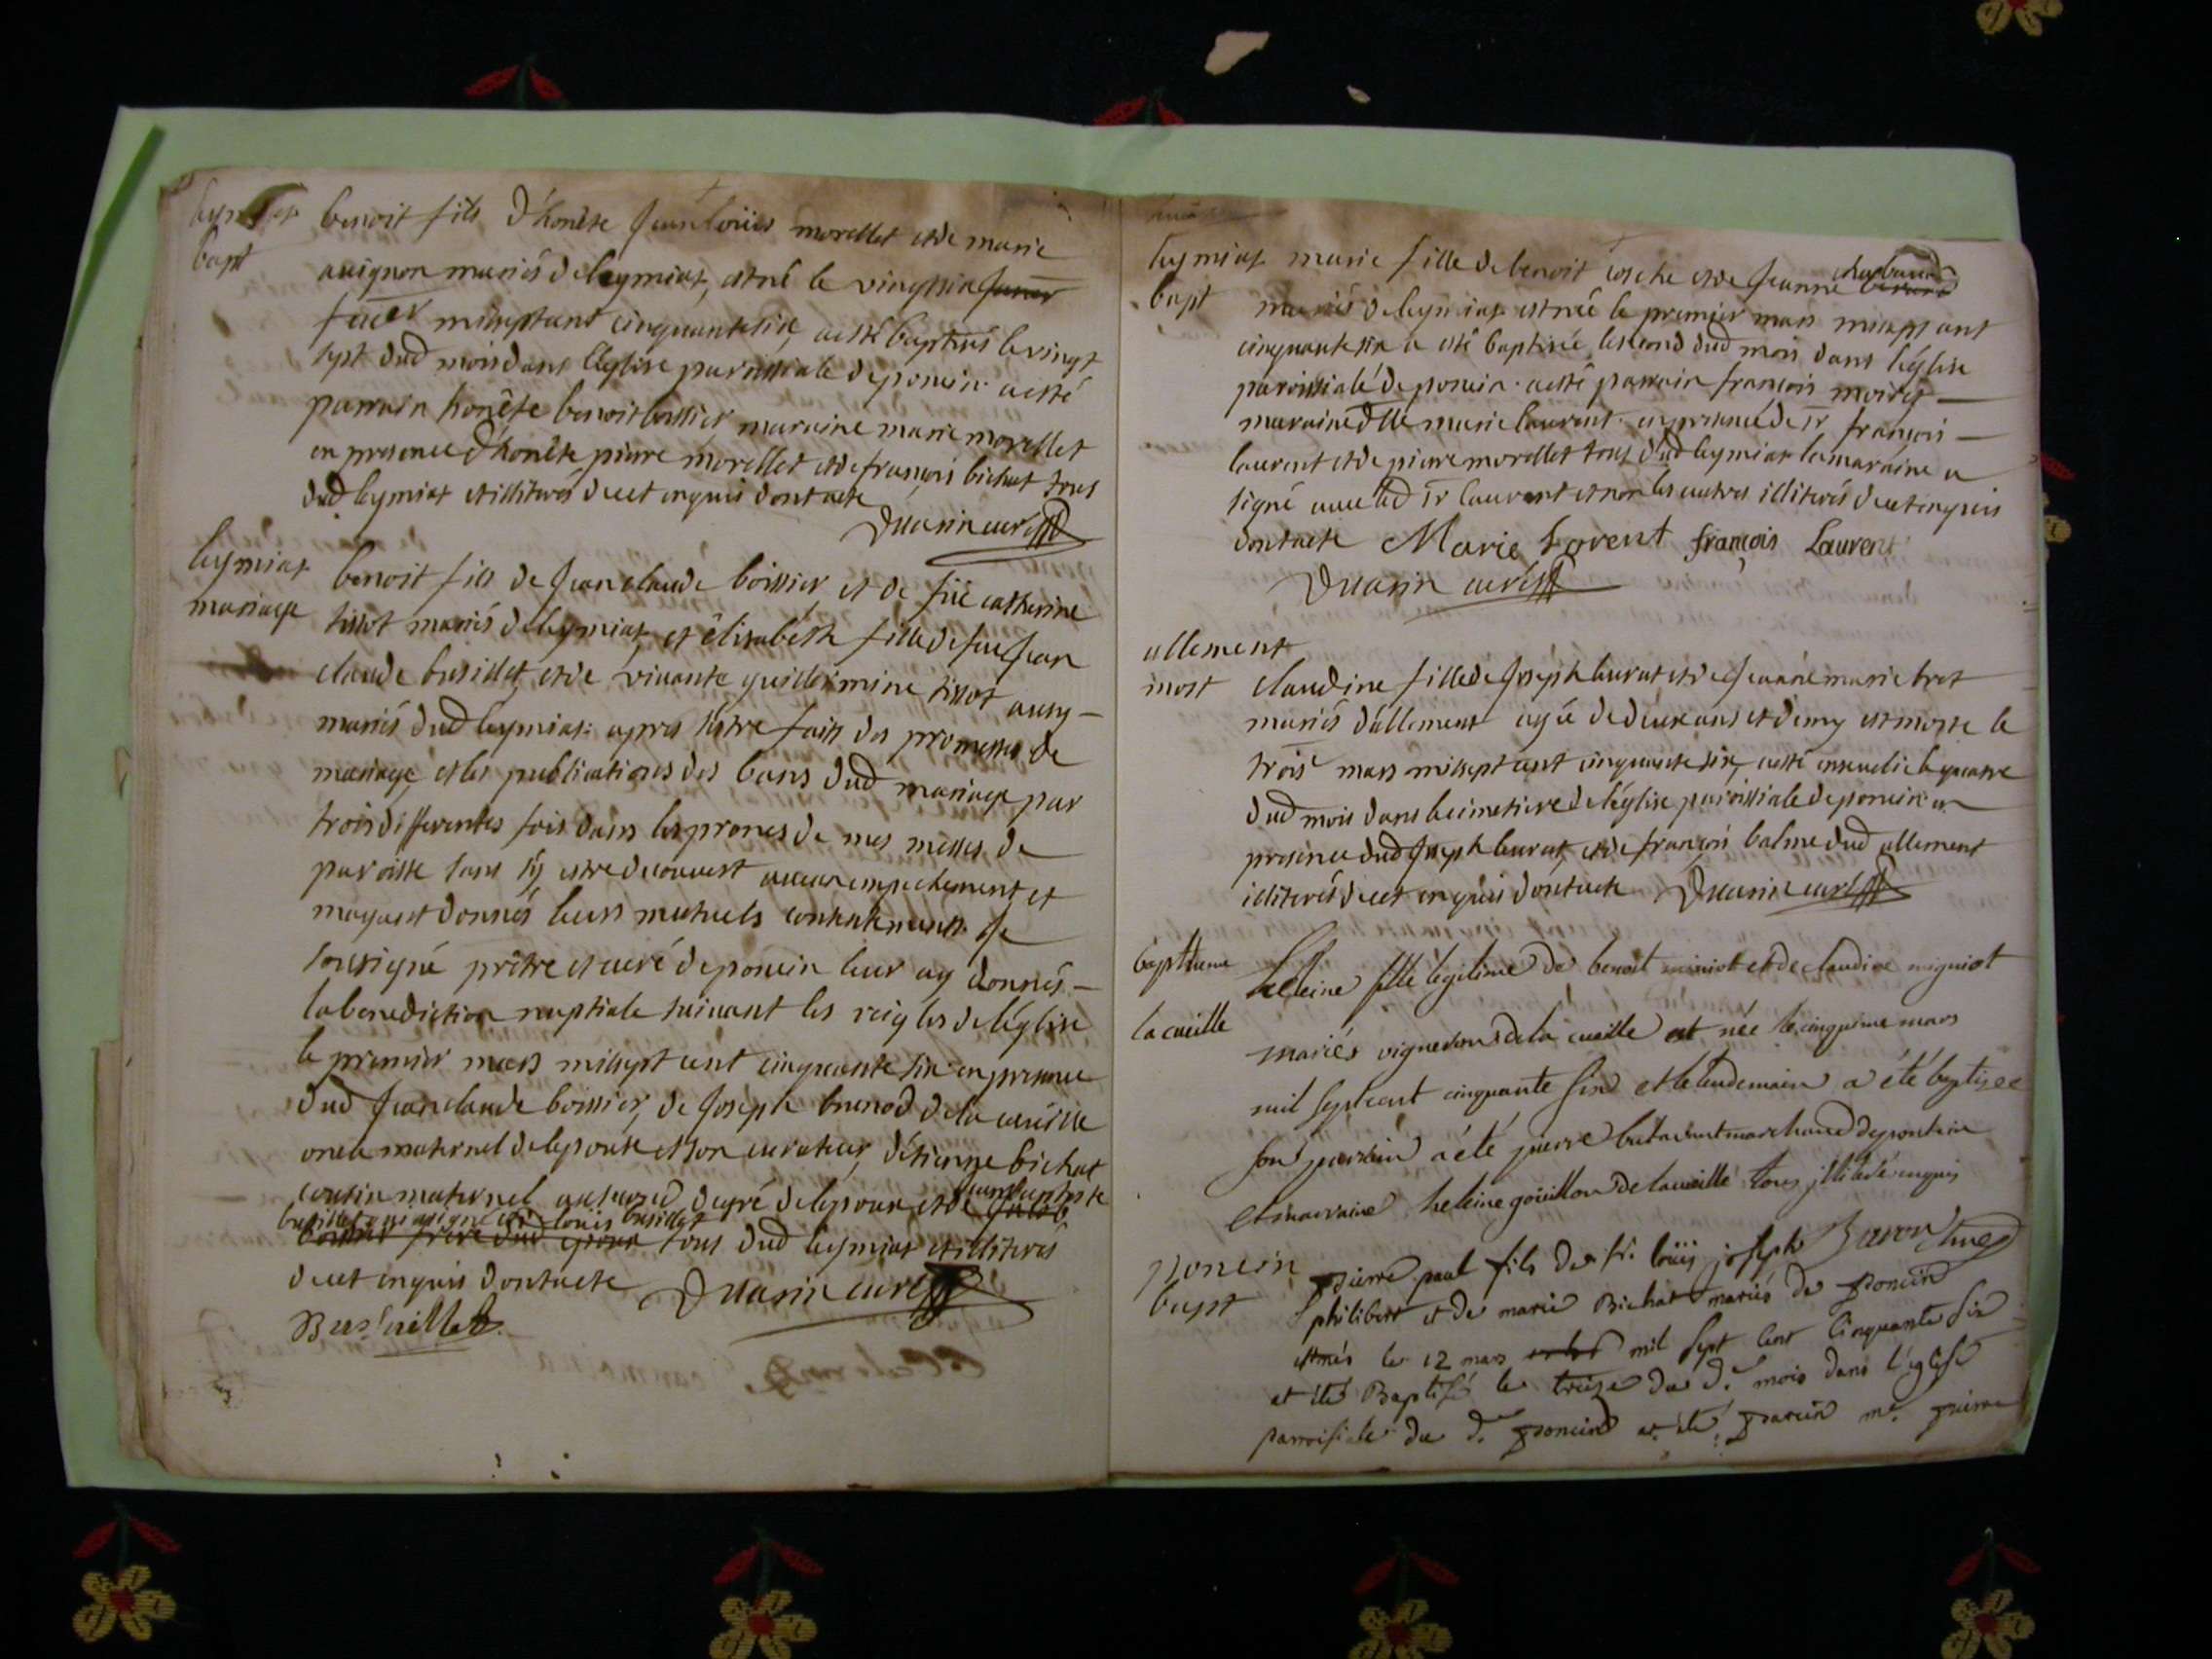 leymiat benoit fils d'honête Jean loüis morellet et de marie
bapt avignon mariés de leymiat, est né le vingt six janer
feuer mil sept cent cinquante six, a esté baptisé le vingt
sept dud mois dans l'église parroissiale de poncin a esté
parrain honête benoit boissier maraine marie morellet
en presence d'honête pierre morellet et de françois bichat tous
dud leymiat et illiterés de cet enquis dont acte
Duarin curé
leymiat benoit fils de Jean claude boissier et de füe catherine
mariage tissot mariés de leymiat et élisabéth fille de feu Jean
claude busillet et de vivante guillermine tissot aussy
mariés dud leymiat: apres s'estre faits des promesses de
mariage et les publications des bans dud mariage par
trois differentes fois dans les prones de mes messes de
paroisse sans s'y estre decouvert aucun empechement et
m'ayant donnés leurs mutuels contentements. Je
sousigné prêtre et curé de poncin leur ay donnés
la benediction nuptiale suivant les reigles de l'église
le premier mars mil sept cent cinquante six en presence
dud Jean claude boissier, de Joseph brunod de la cuëille
oncle maternel de l'epouse et son curateur, d'étienne bichat
cousin maternel au second degré de l'epoux et de Jean baptiste
busillet qui a signé et de loüis busillet
boissier frere dud epoux tous dud leymiat et illiterés
de cet enquis dont acte Duarin curé
Busüillet
leymiat marie fille de benoit coche et de Jeanne charbaud
bapt mariés de leymiat est née le premier mars mil sept cent
cinquante six a esté baptisée le second dud mois dans l'église
paroissiale de poncin. a esté parrain françois
maraine dlle marie laurent. en presence de sr françois
laurent et de pierre morellet tous dud leymiat la maraine a
signé avec led sr laurent et non les autres illiterés de cet enquis
dont acte Marie Lorent françois Laurent
Duarin curé
allement
mort claudine fille de Joseph leurat et de Jeanne marie brot
mariés d'allement agée de deux ans et demy est morte le
trois mars mil sept cent cinquante six, a esté ensevelie le quatre
dud mois dans le cimetiere de l'église paroissiale de poncin en
presence dud Joseph leurat, et de françois balme dud allement
illiterés de cet enquis dont acte Duarin curé
baptteme heleine fille legitime de benoit miniot et de claudine migniot
la cueille mariés vignerons de la cueille est née le cinquieme mars
mil sept cent cinquante six et le lendemain a été baptisee
son parrein a été pierre butavant marchand de pontcin
et marraine heleine goüillon de la cueille tous illiteré enquis
poncin pierre paul fils de sr. loüis joseph
bapt philibert et de marie Bichat mariés de poncin
est nés le 12 mars mil sept cent cinquante six
et été Baptisé le treize du d. mois dans l'église
parroisiale du d. poncin a été parein mr. pierre